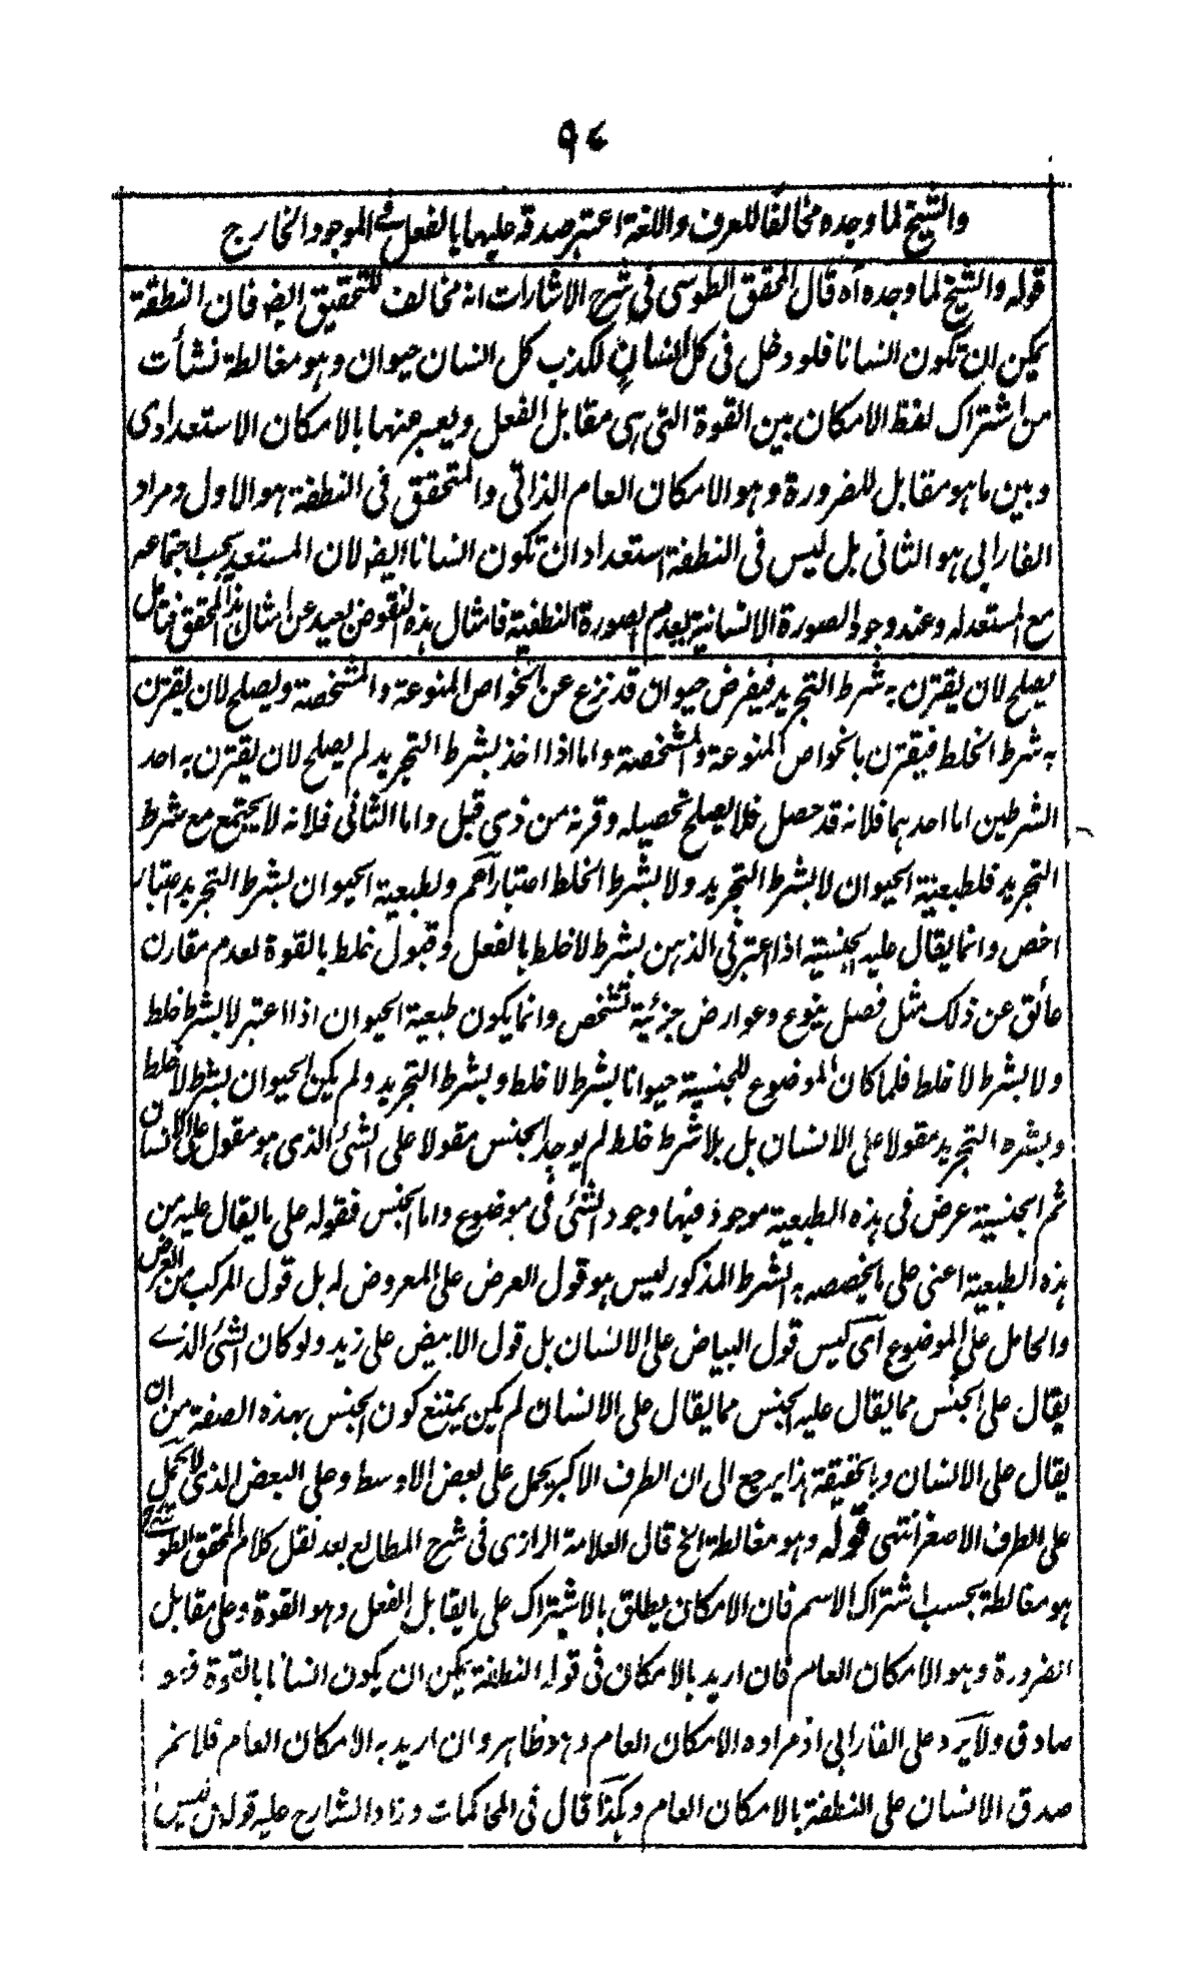 ٩٤
والشيخ لما وجده مخالفا للعرف واللغة اعتبر صدقه عليها بالفعل في الموجود الخارج
قوله والشيخ لما وجده اه قال المحقق الطوسى فى شرح الاشارات انه مخالف للتحقيق ايضا فان النطفة
يمكن ان تكون انسانا فلو دخل فى كل انسان لكذب كل انسان حيوان وهو مغالطة نشأت
من اشتراك لفظ الامكان بين القوة التى هى مقابل الفعل ويعبر عنها بالامكان الاستعدادى
وبين ما هو مقابل للضرورة وهو الامكان العام الذاتى والمتحقق فى النطفة هو الاول ومراد
الفارابى هو الثانى بل ليس فى النطفة استعداد ان تكون انسانا ايضا لان المستعد يجب اجتماعه
مع المستعد له وعند وجود الصورة الانسانية ينعدم الصورة النطفية فامثال هذه النقوض بعيد عن امثال هذا المحقق فتأمل
يصلح لان يقترن به شرط التجريد فيفرض حيوان قد نزع عن الخواص المنوعة والمشخصة ويصلح لان يقترن
به شرط الخلط فيقترن بالخواص المنوعة والمشخصة واما اذا اخذ بشرط التجريد لم يصلح لان يقترن به احد
الشرطين اما احدهما فلانه قد حصل فلا يصلح تحصيله وقرنه من ذى قبل واما الثانى فلانه لا يجتمع مع شرط
التجريد فلطبعية الحيوان لا بشرط التجريد ولا بشرط الخلط اعتبار اعم ولطبعية الحيوان بشرط التجريد اعتبار
اخص وانما يقال عليه الجنسية اذا اعتبر فى الذهن بشرط لا خلط بالفعل وقبول خلط بالقوة لعدم مقارن
عائق عن ذلك مثل فصل ينوع وعوارض جزئية تشخص وانما يكون طبعية الحيوان اذا اعتبر لا بشرط خلط
ولا بشرط لا خلط فلما كان الموضوع للجنسية حيوانا بشرط لا خلط وبشرط التجريد ولم يكن الحيوان بشرط لا خلط
وبشرط التجريد مقولا على الانسان بل بلا شرط خلط لم يوجد الجنس مقولا على الشئ الذى هو مقول على الانسان
ثم الجنسية عرض فى هذه الطبعية موجود فيها وجود الشئ فى موضوع واما الجنس فقوله على ما يقال عليه من
هذه الطبعية اعنى على ما يخصصه به الشرط المذكور ليس هو قول العرض على المعروض له بل قول المركب من العرض
والحامل على الموضوع اى ليس قول البياض على الانسان بل قول الابيض على زيد ولو كان الشئ الذے
يقال على الجنس مما يقال عليه الجنس مما يقال على الانسان لم يكن يمتنع كون الجنس بهذه الصفة من ان
يقال على الانسان وبالحقيقة هذا يرجع الى ان الطرف الاكبر يحمل على بعض الاوسط وعلى البعض الذى لا يحمل
على الطرف الاصغر انتهى قوله وهو مغالطة الخ قال العلامة الرازى فى شرح المطالع بعد نقل كلام المحقق الطوسے
هو مغالطة بحسب اشتراك الاسم فان الامكان يطلق بالاشتراك على ما يقابل الفعل وهو القوة وعلى مقابل
الضرورة وهو الامكان العام فان اريد بالامكان فى قوله النطفة يمكن ان يكون انسانا بالقوة فهو
صادق ولا يرد على الفارابى اذ مراده الامكان العام وهو ظاهر وان اريد به الامكان العام فلا نم
صدق الانسان على النطفة بالامكان العام وهكذا قال فى المحاكمات وزاد الشارح عليه قوله بل ليس